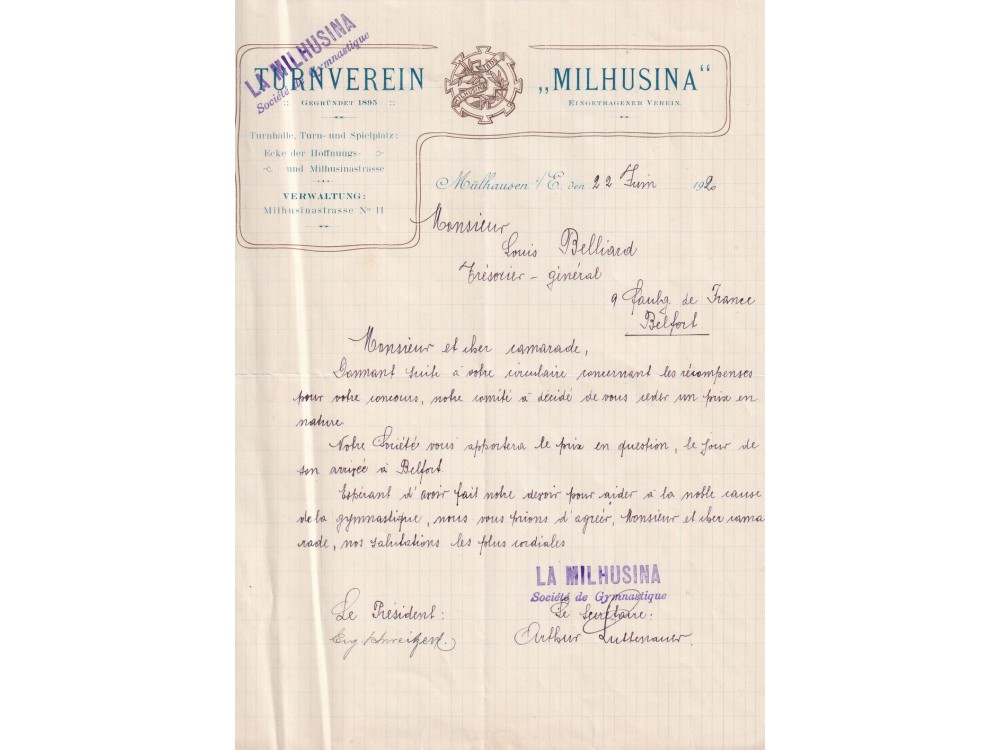 LA MILHUSINA
Société de Gymnastique
TURNVEREIN „MILHUSINA“
GEGRÜNDET 1895
EINGETRAGENER VEREIN.
MILHUSINA
Turnhalle, Turn- und Spielplatz:
Ecke der Hoffnungs-
und Milhusinastrasse
VERWALTUNG:
Milhusinastrasse No 11
Mülhausen i/E. den 22 Juin 1920
Monsieur
Louis Belliard
Trésorier - général
9 Faubg. de France
Belfort
Monsieur et cher camarade,
Donnant suite à votre circulaire concernant les récompenses
pour votre concours, notre comité à décidé de vous ceder un prix en
nature.
Notre Société vous apportera le prix en question, le jour de
son arrivée à Belfort.
Espérant d'avoir fait notre devoir pour aider à la noble cause
de la gymnastique, nous vous prions d'agréer, Monsieur et cher cama
rade, nos salutations les plus cordiales
LA MILHUSINA
Société de Gymnastique
Le Président:
Le Secrétaire:
Eug.
Arthur Luttenauer.